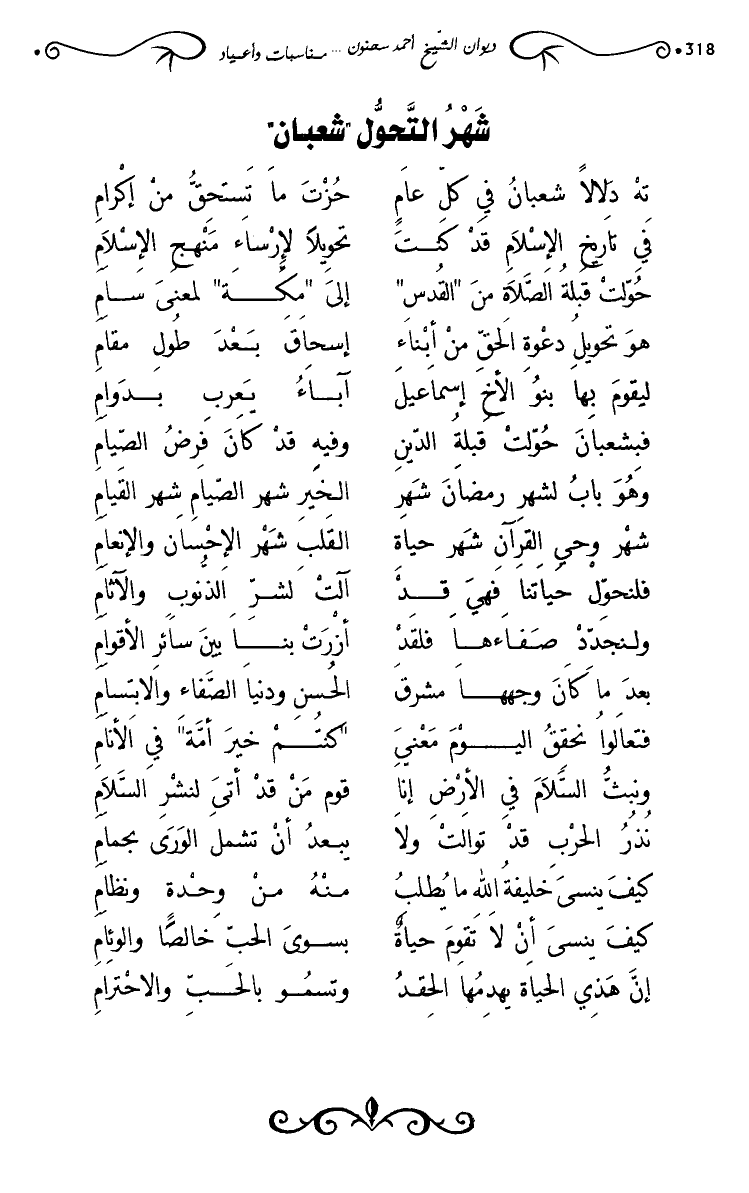 318 ديوان الشيخ أحمد سحنون ... مناسبات وأعياد
شَهْرُ التَّحوُّل "شعبان"
تهْ دَلالاً شعبانُ في كلّ عامٍ حُزْتَ ما تستحقُّ منْ إكْرامِ
في تاريخِ الإسْلامِ قدْ كنتَ تحْويلاً لإرْساء مَنْهجِ الإسْلامِ
حُوّلتْ قبلةُ الصَّلاة منَ "القُدس" إلىَ "مكَّة" لمعنىً سامِ
هوَ تحويل دعْوة الحَقّ منْ أبْناء إسحاقَ بَعْدَ طول مقامِ
ليقومَ بها بنوُ الأخِ إسماعيل آباءُ يَعرب بدوامِ
فبشعبانَ حُوّلتْ قبلةُ الدّينِ وفيهِ قدْ كانَ فرضُ الصّيامِ
وهُوَ بابُ لشهر رمضانَ شَهرِ الخيرِ شهر الصّيامِ شهر القيامِ
شهْر وحيِ القرآنِ شَهر حياة القلب شَهْر الإحْسان والإنعامِ
فلنحوّل حياتنا فهيَ قدْ آلتْ لشرّ الذنُوبِ والآثامِ
ولنجدّدْ صَفاءها فلقدْ أزْرَتْ بنا بينَ سائر الأقوامِ
بعدَ ما كانَ وجهها مشرق الحُسن ودنيا الصَّفاء والابتسامِ
فتعالوا نحققُ اليوْمَ مَعْنىَ "كنتُمْ خيرَ أمَّة" في الأنامِ
ونبثُّ السَّلامَ في الأرْضِ إنا قوم مَنْ قدْ أتىَ لنشْر السَّلامِ
نُذرُ الحرْب قدْ توالتْ ولا يبعدُ أنْ تشمل الوَرَى بحِمامِ
كيفَ ينسىَ خليفةُ الله ما يُطلبُ منْهُ منْ وحْدة ونظامِ
كيفَ ينسىَ أنْ لا تقومَ حياةٌ بسوىَ الحبّ خالصًا والوئامِ
إنَّ هَذي الحياة يهدمُها الحِقدُ وتسمُو بالحبّ والاحْترامِ